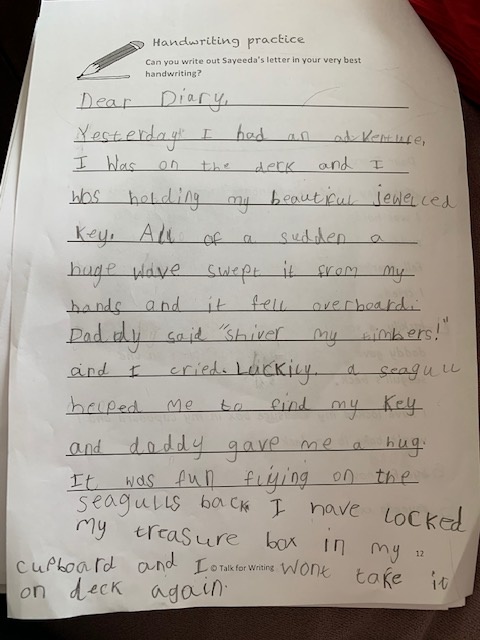 Handwriting practice
Can you write out Sayeeda's letter in your very best
handwriting?
Dear Diary,
Yesterday I had an adventure,
I Was on the deck and I
was holding my beautiful jewelled
Key. All of a sudden a
huge wave swept it from my
hands and it fell overboard.
Daddy said "shiver my timbers!"
and I cried. Luckily, a seagull
helped me to find my key
and daddy gave me a hug.
It was fun flying on the
seagulls back I have locked
my treasure box in my
12
cupboard and I wont take it
© Talk for Writing
on deck again.